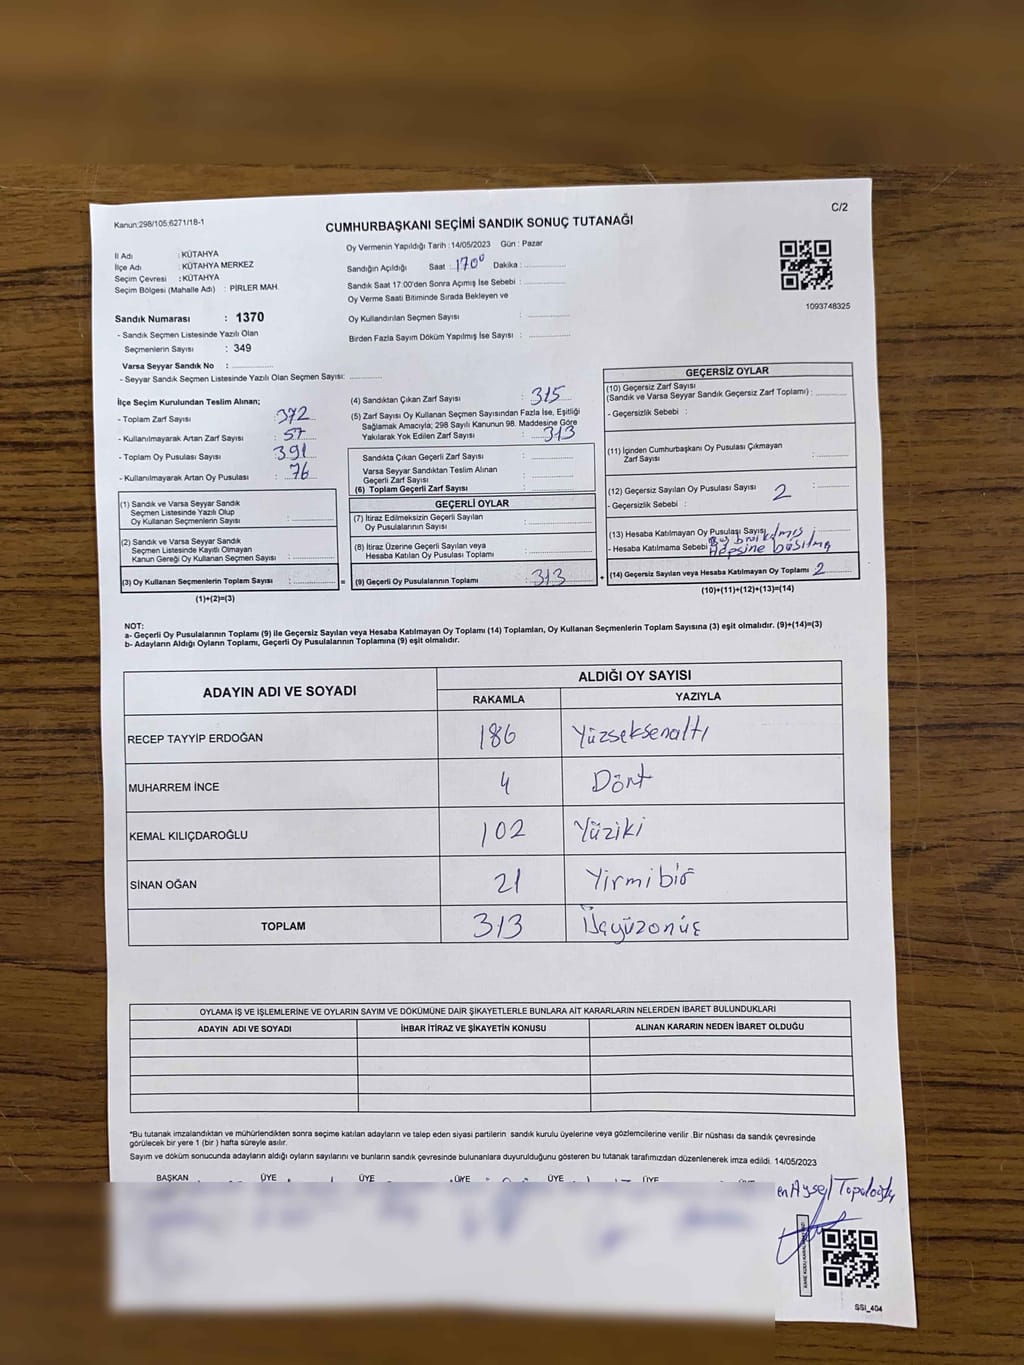 Kanun:298/105;6271/18-1
C/2
CUMHURBAŞKANI SEÇİMİ SANDIK SONUÇ TUTANAĞI
İl Adı : KÜTAHYA
İlçe Adı : KÜTAHYA MERKEZ
Seçim Çevresi : KÜTAHYA
Seçim Bölgesi (Mahalle Adı) : PİRLER MAH.
Sandık Numarası : 1370
- Sandık Seçmen Listesinde Yazılı Olan
Seçmenlerin Sayısı : 349
Varsa Seyyar Sandık No :
- Seyyar Sandık Seçmen Listesinde Yazılı Olan Seçmen Sayısı:
Oy Vermenin Yapıldığı Tarih : 14/05/2023 Gün : Pazar
Sandığın Açıldığı Saat : 17.00 Dakika :
Sandık Saat 17:00'den Sonra Açımış İse Sebebi :
Oy Verme Saati Bitiminde Sırada Bekleyen ve
Oy Kullandırılan Seçmen Sayısı :
Birden Fazla Sayım Döküm Yapılmış İse Sayısı :
1093748325
İlçe Seçim Kurulundan Teslim Alınan;
- Toplam Zarf Sayısı : 372
- Kullanılmayarak Artan Zarf Sayısı : 57
- Toplam Oy Pusulası Sayısı : 391
- Kullanılmayarak Artan Oy Pusulası : 76
(1) Sandık ve Varsa Seyyar Sandık
Seçmen Listesinde Yazılı Olup
Oy Kullanan Seçmenlerin Sayısı :
(2) Sandık ve Varsa Seyyar Sandık
Seçmen Listesinde Kayıtlı Olmayan
Kanun Gereği Oy Kullanan Seçmen Sayısı :
(3) Oy Kullanan Seçmenlerin Toplam Sayısı : =
(1)+(2)=(3)
(4) Sandıktan Çıkan Zarf Sayısı : 315
(5) Zarf Sayısı Oy Kullanan Seçmen Sayısından Fazla İse, Eşitliği
Sağlamak Amacıyla; 298 Sayılı Kanunun 98. Maddesine Göre
Yakılarak Yok Edilen Zarf Sayısı : 313
Sandıkta Çıkan Geçerli Zarf Sayısı :
Varsa Seyyar Sandıktan Teslim Alınan
Geçerli Zarf Sayısı :
(6) Toplam Geçerli Zarf Sayısı
GEÇERLİ OYLAR
(7) İtiraz Edilmeksizin Geçerli Sayılan
Oy Pusulalarının Sayısı :
(8) İtiraz Üzerine Geçerli Sayılan veya
Hesaba Katılan Oy Pusulası Toplamı :
(9) Geçerli Oy Pusulalarının Toplamı : 313 +
GEÇERSİZ OYLAR
(10) Geçersiz Zarf Sayısı
(Sandık ve Varsa Seyyar Sandık Geçersiz Zarf Toplamı) :
- Geçersizlik Sebebi :
(11) İçinden Cumhurbaşkanı Oy Pusulası Çıkmayan
Zarf Sayısı :
(12) Geçersiz Sayılan Oy Pusulası Sayısı : 2
- Geçersizlik Sebebi :
(13) Hesaba Katılmayan Oy Pusulası Sayısı :
- Hesaba Katılmama Sebebi : Boş bırakılmış
Hepsine basılmış
(14) Geçersiz Sayılan veya Hesaba Katılmayan Oy Toplamı : 2
(10)+(11)+(12)+(13)=(14)
NOT:
a- Geçerli Oy Pusulalarının Toplamı (9) ile Geçersiz Sayılan veya Hesaba Katılmayan Oy Toplamı (14) Toplamları, Oy Kullanan Seçmenlerin Toplam Sayısına (3) eşit olmalıdır. (9)+(14)=(3)
b- Adayların Aldığı Oyların Toplamı, Geçerli Oy Pusulalarının Toplamına (9) eşit olmalıdır.
ADAYIN ADI VE SOYADI
ALDIĞI OY SAYISI
RAKAMLA YAZIYLA
RECEP TAYYİP ERDOĞAN 186 Yüzseksenaltı
MUHARREM İNCE 4 Dört
KEMAL KILIÇDAROĞLU 102 Yüziki
SİNAN OĞAN 21 Yirmibir
TOPLAM 313 Üçyüzonüç
OYLAMA İŞ VE İŞLEMLERİNE VE OYLARIN SAYIM VE DÖKÜMÜNE DAİR ŞİKAYETLERLE BUNLARA AİT KARARLARIN NELERDEN İBARET BULUNDUKLARI
ADAYIN ADI VE SOYADI İHBAR İTİRAZ VE ŞİKAYETİN KONUSU ALINAN KARARIN NEDEN İBARET OLDUĞU
"Bu tutanak imzalandıktan ve mühürlendikten sonra seçime katılan adayların ve talep eden siyasi partilerin sandık kurulu üyelerine veya gözlemcilerine verilir .Bir nüshası da sandık çevresinde
görülecek bir yere 1 (bir ) hafta süreyle asılır.
Sayım ve döküm sonucunda adayların aldığı oyların sayılarını ve bunların sandık çevresinde bulunanlara duyurulduğunu gösteren bu tutanak tarafımızdan düzenlenerek imza edildi. 14/05/2023
BAŞKAN ÜYE ÜYE ÜYE ÜYE ÜYE ÜYE
en Aysel Topaloğlu
SSI_404